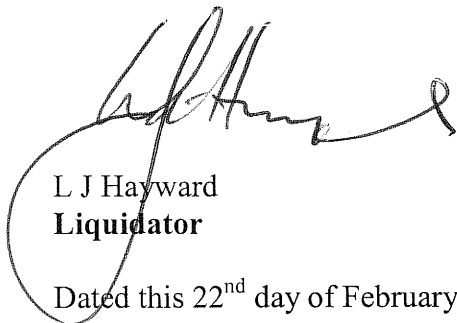 L J Hayward
Liquidator
Dated this 22nd day of February